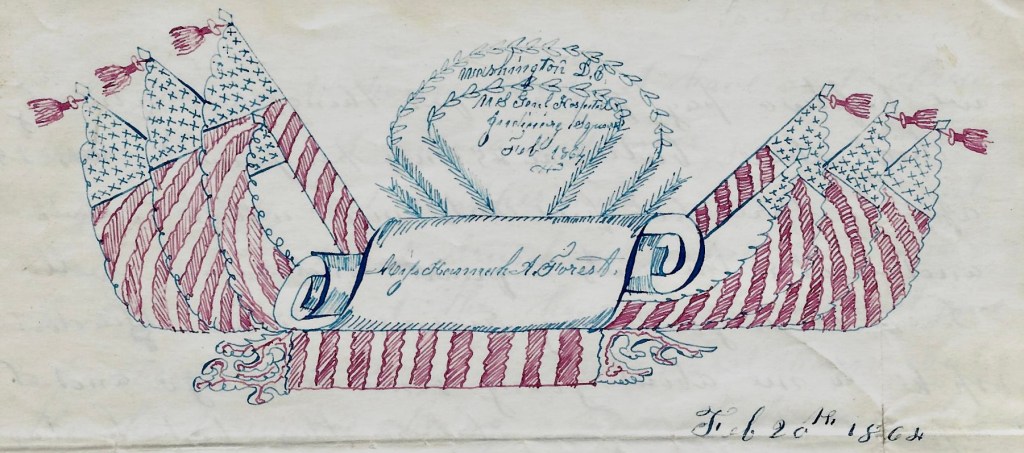 Washington D.C
U S Genl Hospital
Judiciary Square
Feb 1864
Miss Hannah A. Forest.
Feb 20th 1864